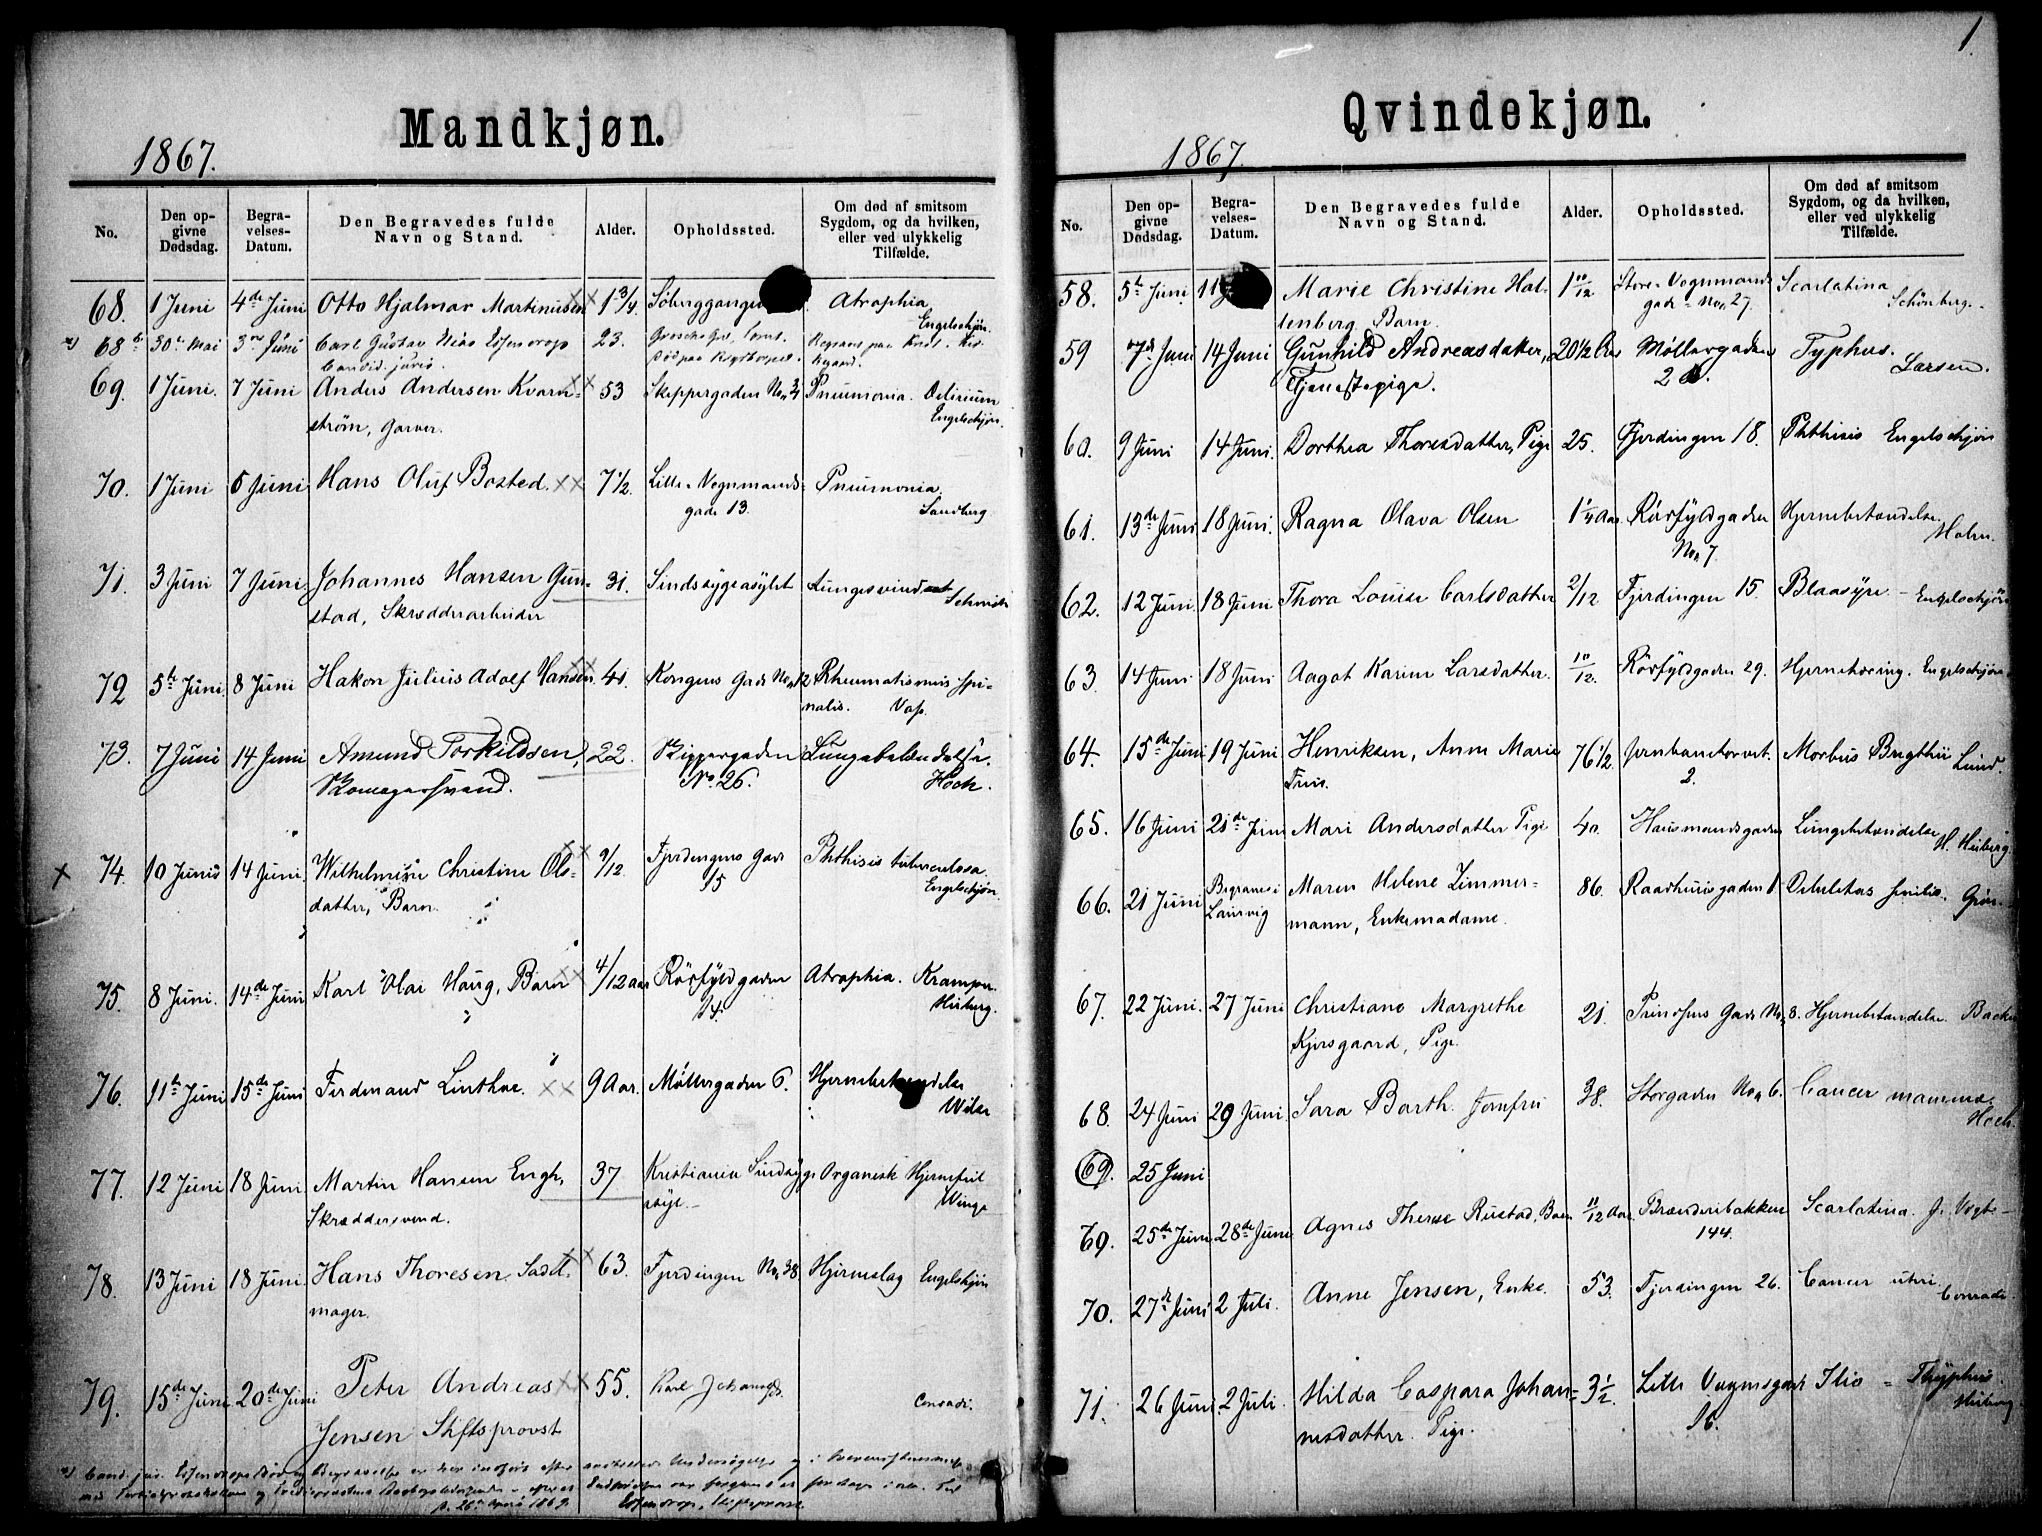 1
Mandkjøn.
1867.
No.
Den op-
givne
Dødsdag.
Begra-
velses-
Datum.
Den Begravedes fulde
Navn og Stand.
Alder.
Opholdssted.
Om død af smitsom
Sygdom, og da hvilken,
eller ved ulykkelig
Tilfælde.
68. 1 Juni 4de Juni Otto Hjalmar Martinusen 1 3/4 Atrophia
Engelschjøn.
68 b 30te Mai 3die Juni Carl Gustav 23.
Candid. juris.
69. 1 Juni. 7 Juni Anders Andersen Kvarn- 53 Skippergaden No. Pneumonia. Delirium
strøm, Garver. Engelschjøn.
70. 1 Juni 6 Juni Hans Oluf Bosted. 7 1/2. Lille Vognmands- Pneumonia.
gade 13. Sandberg.
71. 3 Juni 7 Juni Johannes Hansen Gun- 31. Sindssygeasylet Lungesvindsot
stad, Skrædderarbeider
72 5te Juni 8 Juni Hakon Julius Adolf Hansen 41. Kongens Gade No. 2 Rheumatismus spi-
nalis.
73. 7 Juni 14 Juni Amund Torkildsen, 22. Skippergaden Lungebetændelse.
Skomagersvend. No. 26. Hoch.
74. 10 Juni 14 Juni. Wilhelmine Christine Ols- 9/12 Fjerdingens Gade Phthisis tuberculosa.
datter, Barn. 15 Engelschjøn.
75. 8 Juni. 14de Juni Karl Olai Haug, Barn 4/12 Aar Rörfyldgaden Atrophia. Kramper.
Huberg.
76. 11te Juni 15de Juni Ferdinand Linthoe. 9 Aar. Møllergaden 6. Hjernebetændelse
Wilse
77. 12 Juni 18 Juni. Martin Hansen Engh, 37 Kristiania Sindssyge Organisk Hjernefeil
Skræddersvend. asyl. Winge
78. 13 Juni 18 Juni. Hans Thoresen. Sadel- 63. Fjerdingen No. 38 Hjerneslag Engelschjøn
mager.
79. 15de Juni 20de Juni Peter Andreas 55. Karl Johansgd. Conradi.
Jensen Stiftsprovst
Qvindekjøn.
1867.
No.
Den op-
givne
Dødsdag.
Begra-
velses-
Datum.
Den Begravedes fulde
Navn og Stand.
Alder.
Opholdssted.
Om død af smitsom
Sygdom, og da hvilken,
eller ved ulykkelig
Tilfælde.
58. 5te Juni 11 Marie Christine Hal- 1 10/12 Store-Vognmands Scarlatina
lenberg. Barn. gade No. 27. Schönberg.
59 7de Juni 14 Juni Gunhild Andreasdatter, 20 1/2 Aar Møllergaden Typhus.
Tjenestepige. Larsen.
60. 9 Juni 14 Juni. Dorthea Thoresdatter, Pige 25. Fjerdingen 18. Phthisis Engelschjøn
61. 13de Juni 18 Juni. Ragna Olava Olsen 1 1/4 Aar. Rörfyldgaden Hjernebetændelse.
No. 7. Holm.
62. 12 Juni. 18 Juni Thora Louise Carlsdatter 2/12 Fjerdingen 15. Blaasyre. - Engelschjøn
63. 14 Juni 18 Juni Aagot Karine Larsdatter. 10/12. Rörfyldgaden 29. Hjernetæring. Engelschjøn
64. 15de Juni 19 Juni Henriksen, Anne Marie 76 1/2. Jernbanetorvet. Morbus Brigthii
Frue. 2. Lund.
65. 16 Juni 21de Juni Mari Andersdatter Pige 40. Hausmandsgaden Lungebetændelse
H. Huberg
66. 21 Juni Begravet i Maren Helene Zimmer- 86. Raadhuusgaden 1 Debilitas senilis. Grøn.
Laurvig mann, Enkemadame.
67. 22 Juni. 27 Juni Christiane Margrethe 21. Prindsens Gade No. 3. Hjernebetændelse. Backer
Kjersgaard, Pige.
68. 24 Juni 29 Juni. Sara Barth. Jomfru 38. Storgaden No. 6. Cancer mammæ.
Hoch.
69. 25 Juni
69. 25de Juni 28de Juni Agnes Therese Rustad, Barn 11/12 Aar. Brænderibakken Scarlatina. J. Vogt
144.
70. 27de Juni 2 Juli. Anne Jensen, Enke. 53. Fjerdingen 26. Cancer uteri.
Conradi.
71. 26 Juni 2 Juli Hilda Caspara Johan- 3 1/2. Lille Vognmgad Ilio - Thyphus.
nesdatter. Pige. 16. Huberg